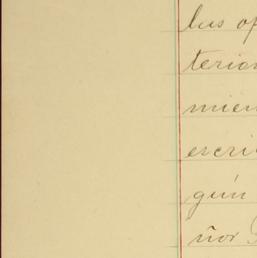 bus op
terior
mien
escri
gún
ñor